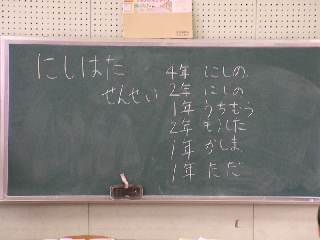 にしはた
せんせい
4年 にしの
2年 にしの
1年 うちむら
2年 もうした
1年 かしま
1年 ただ